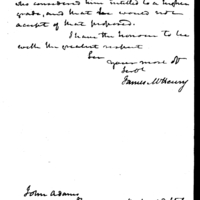 who considered him intitled to a higher
grade, and that he would not
accept of that proposed.
I have the honour to be
with the greatest respect
Sir
your most Ob
Servt
James McHenry
John Adams